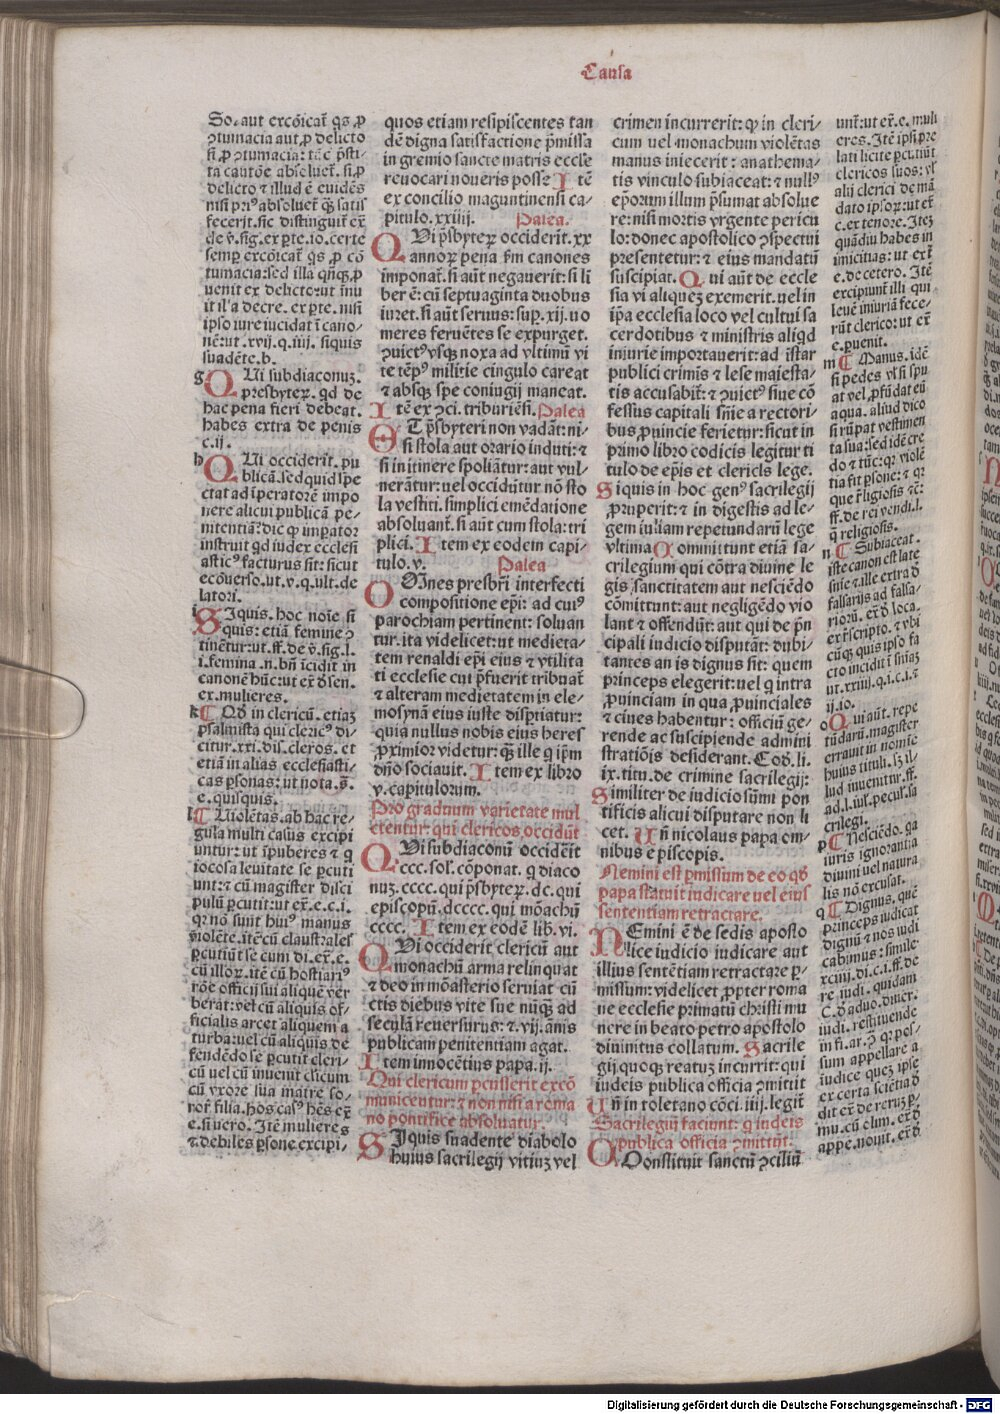 Causa
So. aut excōicat᷑ qs ꝓ
ꝯtumacia aut ꝓ delicto
si ꝓ ꝯtumacia: tūc p̄sti-
ta cautōe absoluet᷑. si ꝓ
delicto ⁊ illud ē euidēs
nisi priꝰ absoluet᷑ qꝫ satis
fecerit. sic distinguit᷑ ex̄
de v̄. sig. ex ꝑte. io. certe
semꝑ excōicat᷑ qs ꝓ cō
tumacia: sed illa qn̄qꝫ ꝓ
uenit ex delicto: ut īnu
it il'a decre. ex ꝑte. nisi
ipso iure iudicat᷑ ī cano-
nē: ut .xvij. q. iiij. siquis
suadēte. b.
g QUi subdiaconuꝫ.
presbyteꝝ. qd de
hac pena fieri debeat.
habes extra de penis
c. ij.
h QUi occiderit. pu
blicā. sed quid spe
ctat ad īperatorē impo
nere alicui publicā pe-
nitentiā: dic ꝙ imꝑator
instruit qd iudex ecclesi
asticꝰ facturus sit: sicut
ecōuerso. ut. v. q. ult. de
latori.
i SIquis. hoc noīe si
quis: etiā femine ꝯ
tinētur: ut. ff. de v̄. sig. l.
i. femina. n. bn̄ īcidit in
canonē hūc: ut ex̄ d sen.
ex. mulieres.
k ¶ Qd in clericū. etiaꝫ
psalmista qui clericꝰ di
citur. xxi. dis. cleros. et
etiā in alias ecclesiasti-
cas ꝑsonas: ut nota. s̄.
e. quisquis.
l ¶ Uiolētas. ab hac re-
gula multi casus excipi
untur: ut īpuberes ⁊ q
iocosa leuitate se ꝑcuti
unt: ⁊ cū magister disci
pulū ꝑcutit: ut ex̄. e. c. i.
qꝛ nō sunt huiꝰ manus
violēte. itē cū claustrales
ꝑcutiūt se cum di. ex̄. e.
cū illoꝝ. itē cū hostiariꝰ
rōe officij sui aliquē ver
berat: vel cū aliquis of-
ficialis arcet aliquem a
turba: vel cū aliquis de
fendēdo se ꝑcutit cleri-
cū uel cū inuenit cl̄icum
cū vxore sua matre so-
ror᷑ filia. hos casꝰ hēs ex̄
e. si vero. Itē mulieres
⁊ debiles ꝑsone excipi-
quos etiam resipiscentes tan
dē digna satisfactione p̄missa
in gremio sancte matris eccl̄e
reuocari noueris posse Itē
ex concilio maguntinensi ca-
pitulo. xxiiij. Palea.
QUi p̄sbyteꝝ occiderit. xx
annoꝝ pena s̄m canones
imponat᷑. si aūt negauerit: si li
ber ē: cū septuaginta duobus
iuret. si aūt seruus: suꝑ. xij. uo
meres feruētes se expurget.
ꝯuictꝰ vsqꝫ noxa ad vltimū vi
te tēpꝰ militie cingulo careat
⁊ absqꝫ spe coniugij maneat.
Itē ex ꝯci. triburiēsi. Palea
UT p̄sbyteri non vadāt: ni-
si stola aut orario induti: ⁊
si in itinere spoliātur: aut vul-
nerātur: uel occidūtur nō sto
la vestiti. simplici emēdatione
absoluant᷑. si aūt cum stola: tri
plici. Item ex eodem capi-
tulo. v. Palea
OMnes presbr̄i interfecti
compositione ep̄i: ad cuiꝰ
parochiam pertinent: soluan
tur. ita videlicet: ut medieta-
tem renaldi ep̄i eius ⁊ vtilita
ti ecclesie cui p̄fuerit tribuat᷑
⁊ alteram medietatem in ele-
mosynā eius iuste dispr̄iatur:
quia nullus nobis eius heres
ꝓximior videtur: qꝫ ille q ip̄m
dn̄o sociauit. Item ex libro
v. capitulorum.
Pro graduum varietate mul
ctentur: qui clericos occidūt
QUi subdiaconū occiderit
ccc. sol'. cōponat. q diaco
nuꝫ. cccc. qui p̄sbyteꝝ. dc. qui
episcopū. dcccc. qui mōachū
cccc. Item ex eodē lib. vi.
QUi occiderit clericū aut
monachū arma relinquat
⁊ deo in mōasterio seruiat cū
ctis diebus vite sue nūqꝫ ad
seculā reuersurus: ⁊. vij. annis
publicam penitentiam agat.
Item innocētius papa. ij.
Qui clericum ꝑcusserit excō
municentur: ⁊ non nisi a roma
no pontifice absoluatur.
SIquis suadente diabolo
huius sacrilegij vitiuꝫ vel
crimen incurrerit: ꝙ in cleri-
cum uel monachum violētas
manus iniecerit: anathema-
tis vinculo subiaceat: ⁊ nullꝰ
ep̄orum illum p̄sumat absolue
re: nisi mortis vrgente pericu
lo: donec apostolico ꝯspectui
presentetur: ⁊ eius mandatū
suscipiat. Qui aūt de eccle
sia vi aliqueꝫ exemerit. uel in
ip̄a ecclesia loco vel cultui sa
cerdotibus ⁊ ministris aliqd
iniurie importauerit: ad īstar
publici crimis ⁊ lese maiesta-
tis accusabit᷑: ⁊ ꝯuictꝰ siue cō
fessus capitali sn̄ie a rectori-
bus ꝓuincie ferietur: sicut in
primo libro codicis legitur ti
tulo de ep̄is et clericis lege.
Siquis in hoc genꝰ sacrilegij
ꝓruperit: ⁊ in digestis ad le-
gem iuliam repetundarū lege
vltima Committunt etiā sa-
crilegium qui cōtra diuine le
gis sanctitatem aut nesciēdo
cōmittunt: aut negligēdo vio
lant ⁊ offendūt: aut qui de p̄n
cipali iudicio disputāt: dubi-
tantes an is dignus sit: quem
princeps elegerit: uel q intra
ꝓuinciam in qua ꝓuinciales
⁊ ciues habentur: officiū ge-
rende ac suscipiende admini
stratiōis desiderant. Cod. li.
ix. titu. de crimine sacrilegij:
Similiter de iudicio sūmi pon
tificis alicui disputare non li
cet. Un̄ nicolaus papa om-
nibus episcopis.
Nemini est ꝑmissum de eo qd
papa statuit iudicare uel eius
sententiam retractare.
NEmini ē de sedis aposto
lice iudicio iudicare aut
illius sentētiam retractare ꝑ-
missum: videlicet ꝓpter roma
ne ecclesie primatū christi mu
nere in beato petro apostolo
diuinitus collatum. Sacrile
gij quoqꝫ reatuꝫ incurrit: qui
iudeis publica officia ꝯmittit
Un̄ in toletano cōci. iiij. legit᷑
Sacrilegiū faciunt: q iudeis
publica officia ꝯmittūt.
COnstituit sanctū ꝯciliū
unt᷑: ut ex̄. e. muli
eres. Itē ipsi pre
lati licite ꝑcutiūt
clericos suos: vl'
alij clerici de mā
dato ipsoꝝ: ut ex̄
e. ex tenore. Iteꝫ
quādiu habes in
imicitias: ut ext᷑
e. de cetero. Itē
excipiunt᷑ illi qui
leuē iniuriā fece-
rūt clerico: ut ex̄
e. ꝑuenit.
m ¶ Manus. idē
si pedes vl' si spu
at vel ꝑfūdat eū
aqua. aliud dico
si rūpat vestimen
ta sua: sed idē cre
do ⁊ tūc: qꝛ violē
tia fit ꝑsone: ⁊ qꝛ
que r̄ligiosis ⁊c̄:
ff. de rei vendi. l.
q̄ religiosis.
n ¶ Subiaceat.
iste canon est late
sn̄ie ⁊ ille extra d
falsarijs ad falsa-
rioꝝ. ex̄ d loca.
ex r̄scripto. ⁊ vbi
cūqꝫ quis ipso fa
cto incidit ī sn̄iaꝫ
ut. xxiij. q. i. c. i. ⁊
ij. io.
o QUi aūt. repe
tūdarū. magister
errauit in nomīe
huius tituli. sꝫ il-
lud inuenitur. ff.
ad. l. iul'. pecul'. sa
crilegi.
p ¶ Nesciēdo. qa
iuris ignorantia
diuini uel natura
lis nō excusat.
q ¶ Dignus. quē
princeps iudicat
dignū ⁊ nos iudi
cabimus: simile.
xciij. di. c. i. ff. de
re iudi. quidam
C. d aduo. diuer.
iudi. restituende
in fi. ar. ꝯ̄ q: pos-
sum appellare a
iudice queꝫ ipse
ex certa sciētia d
dit ex̄ de reruꝫ ꝑ-
mu. cū clim. ex̄ d
appe. nouit. ex̄ d
Digitalisierung gefördert durch die Deutsche Forschungsgemeinschaft - DFG